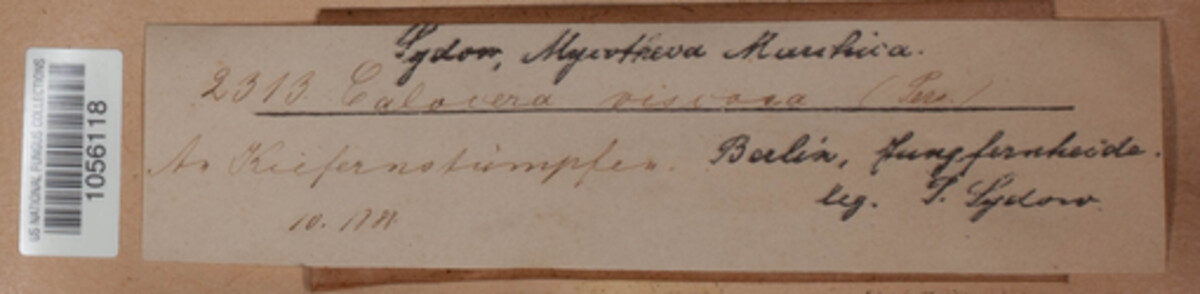 US NATIONAL FUNGUS COLLECTIONS
1056118
Sydow, Mycotheca Marchica.
2313. Calocera viscosa (Pers.)
An Kiefernstümpfen.
Berlin, Jungfernheide.
leg. P. Sydow
10.